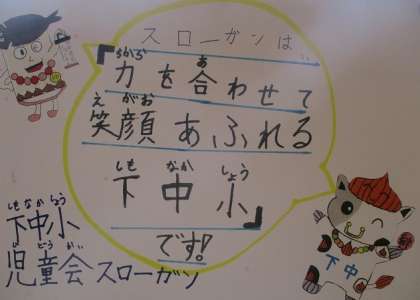 スローガンは、
『力を合わせて
笑顔あふれる
下中小』
です!
下中小
児童会スローガン
下中